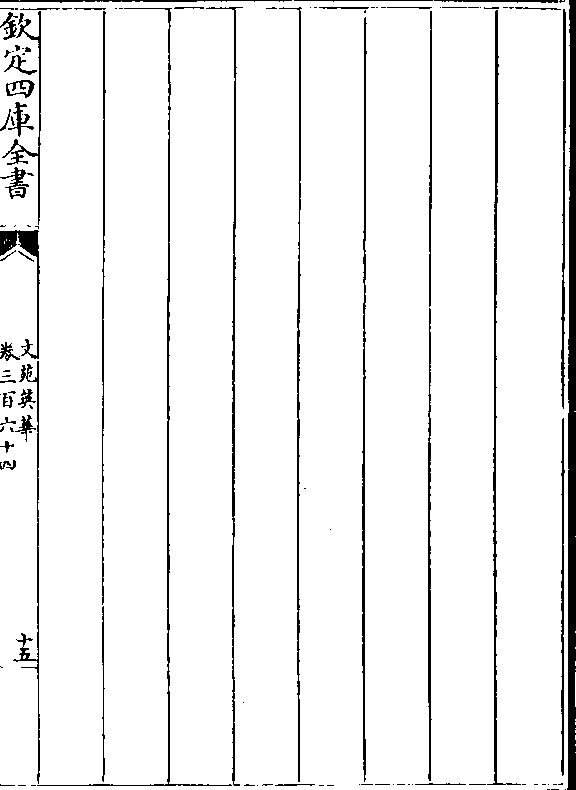 欽定四庫全書
文苑英華
卷三百六十四
十五